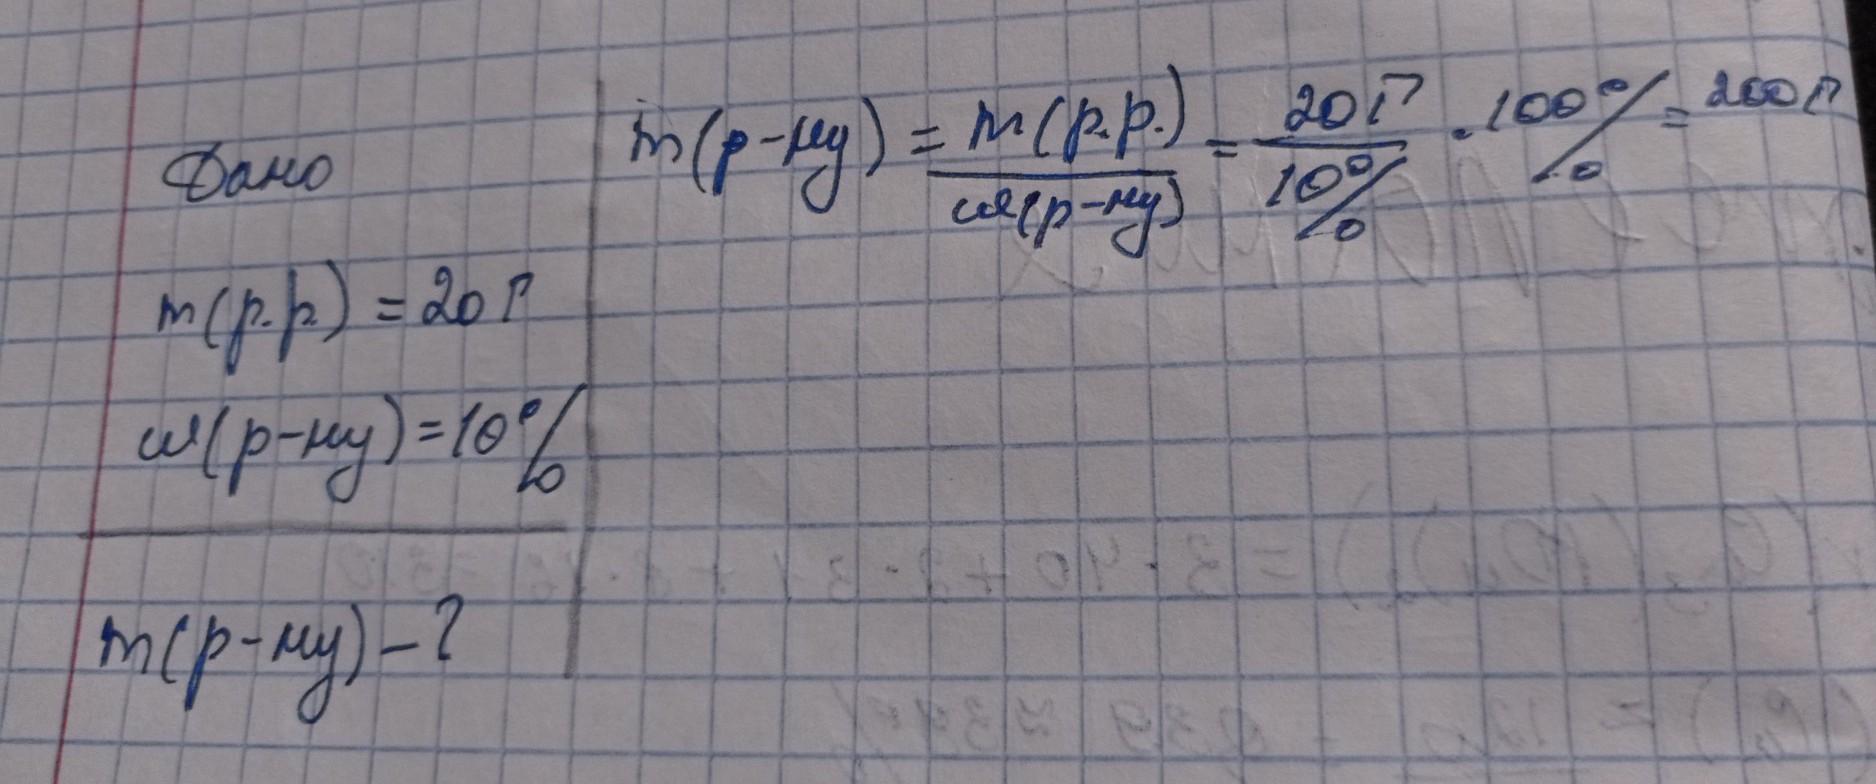 Дано
m(р.р.) = 20г
ω(р-ну) = 10%
m(р-ну) – ?
m(р-ну) = m(р.р.) / ω(р-ну) = 20г / 10% · 100% = 200г